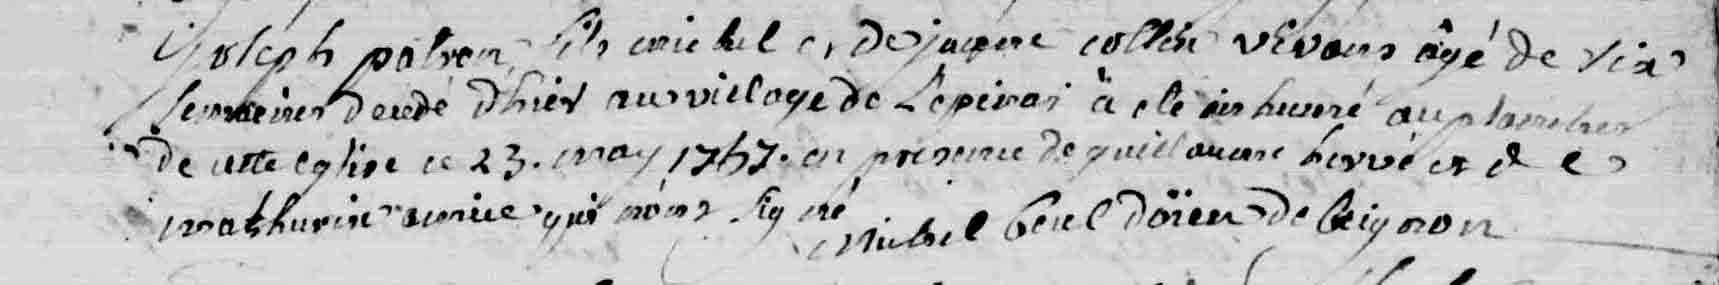 joseph patron fils michel et de jacquine collin vivans âgé de six
semaines decedé d'hier au village de l'epinai a ete inhumé au placitre
de cette eglise ce 23. may 1767. en presence de guillaume hervé et de
mathurin qui n'ont signé
Michel doien de beignon